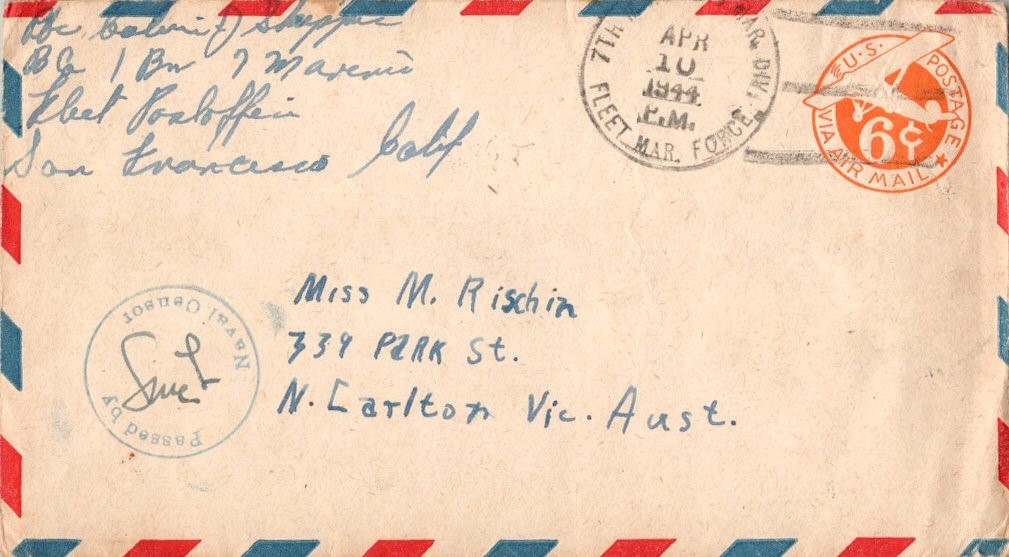 Calvin J
B Co 1 Bn 7 Marines
Fleet Postoffice
San Francisco Calif
7TH MAR. DIV.
APR
10
1944
P.M.
FLEET MAR. FORCE
U.S. POSTAGE
6¢
VIA AIR MAIL
Miss M. Rischin
339 PARK St.
N. Carlton Vic. Aust.
Passed by
Naval Censor